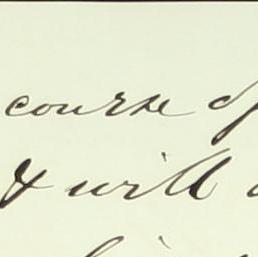 course of
& will